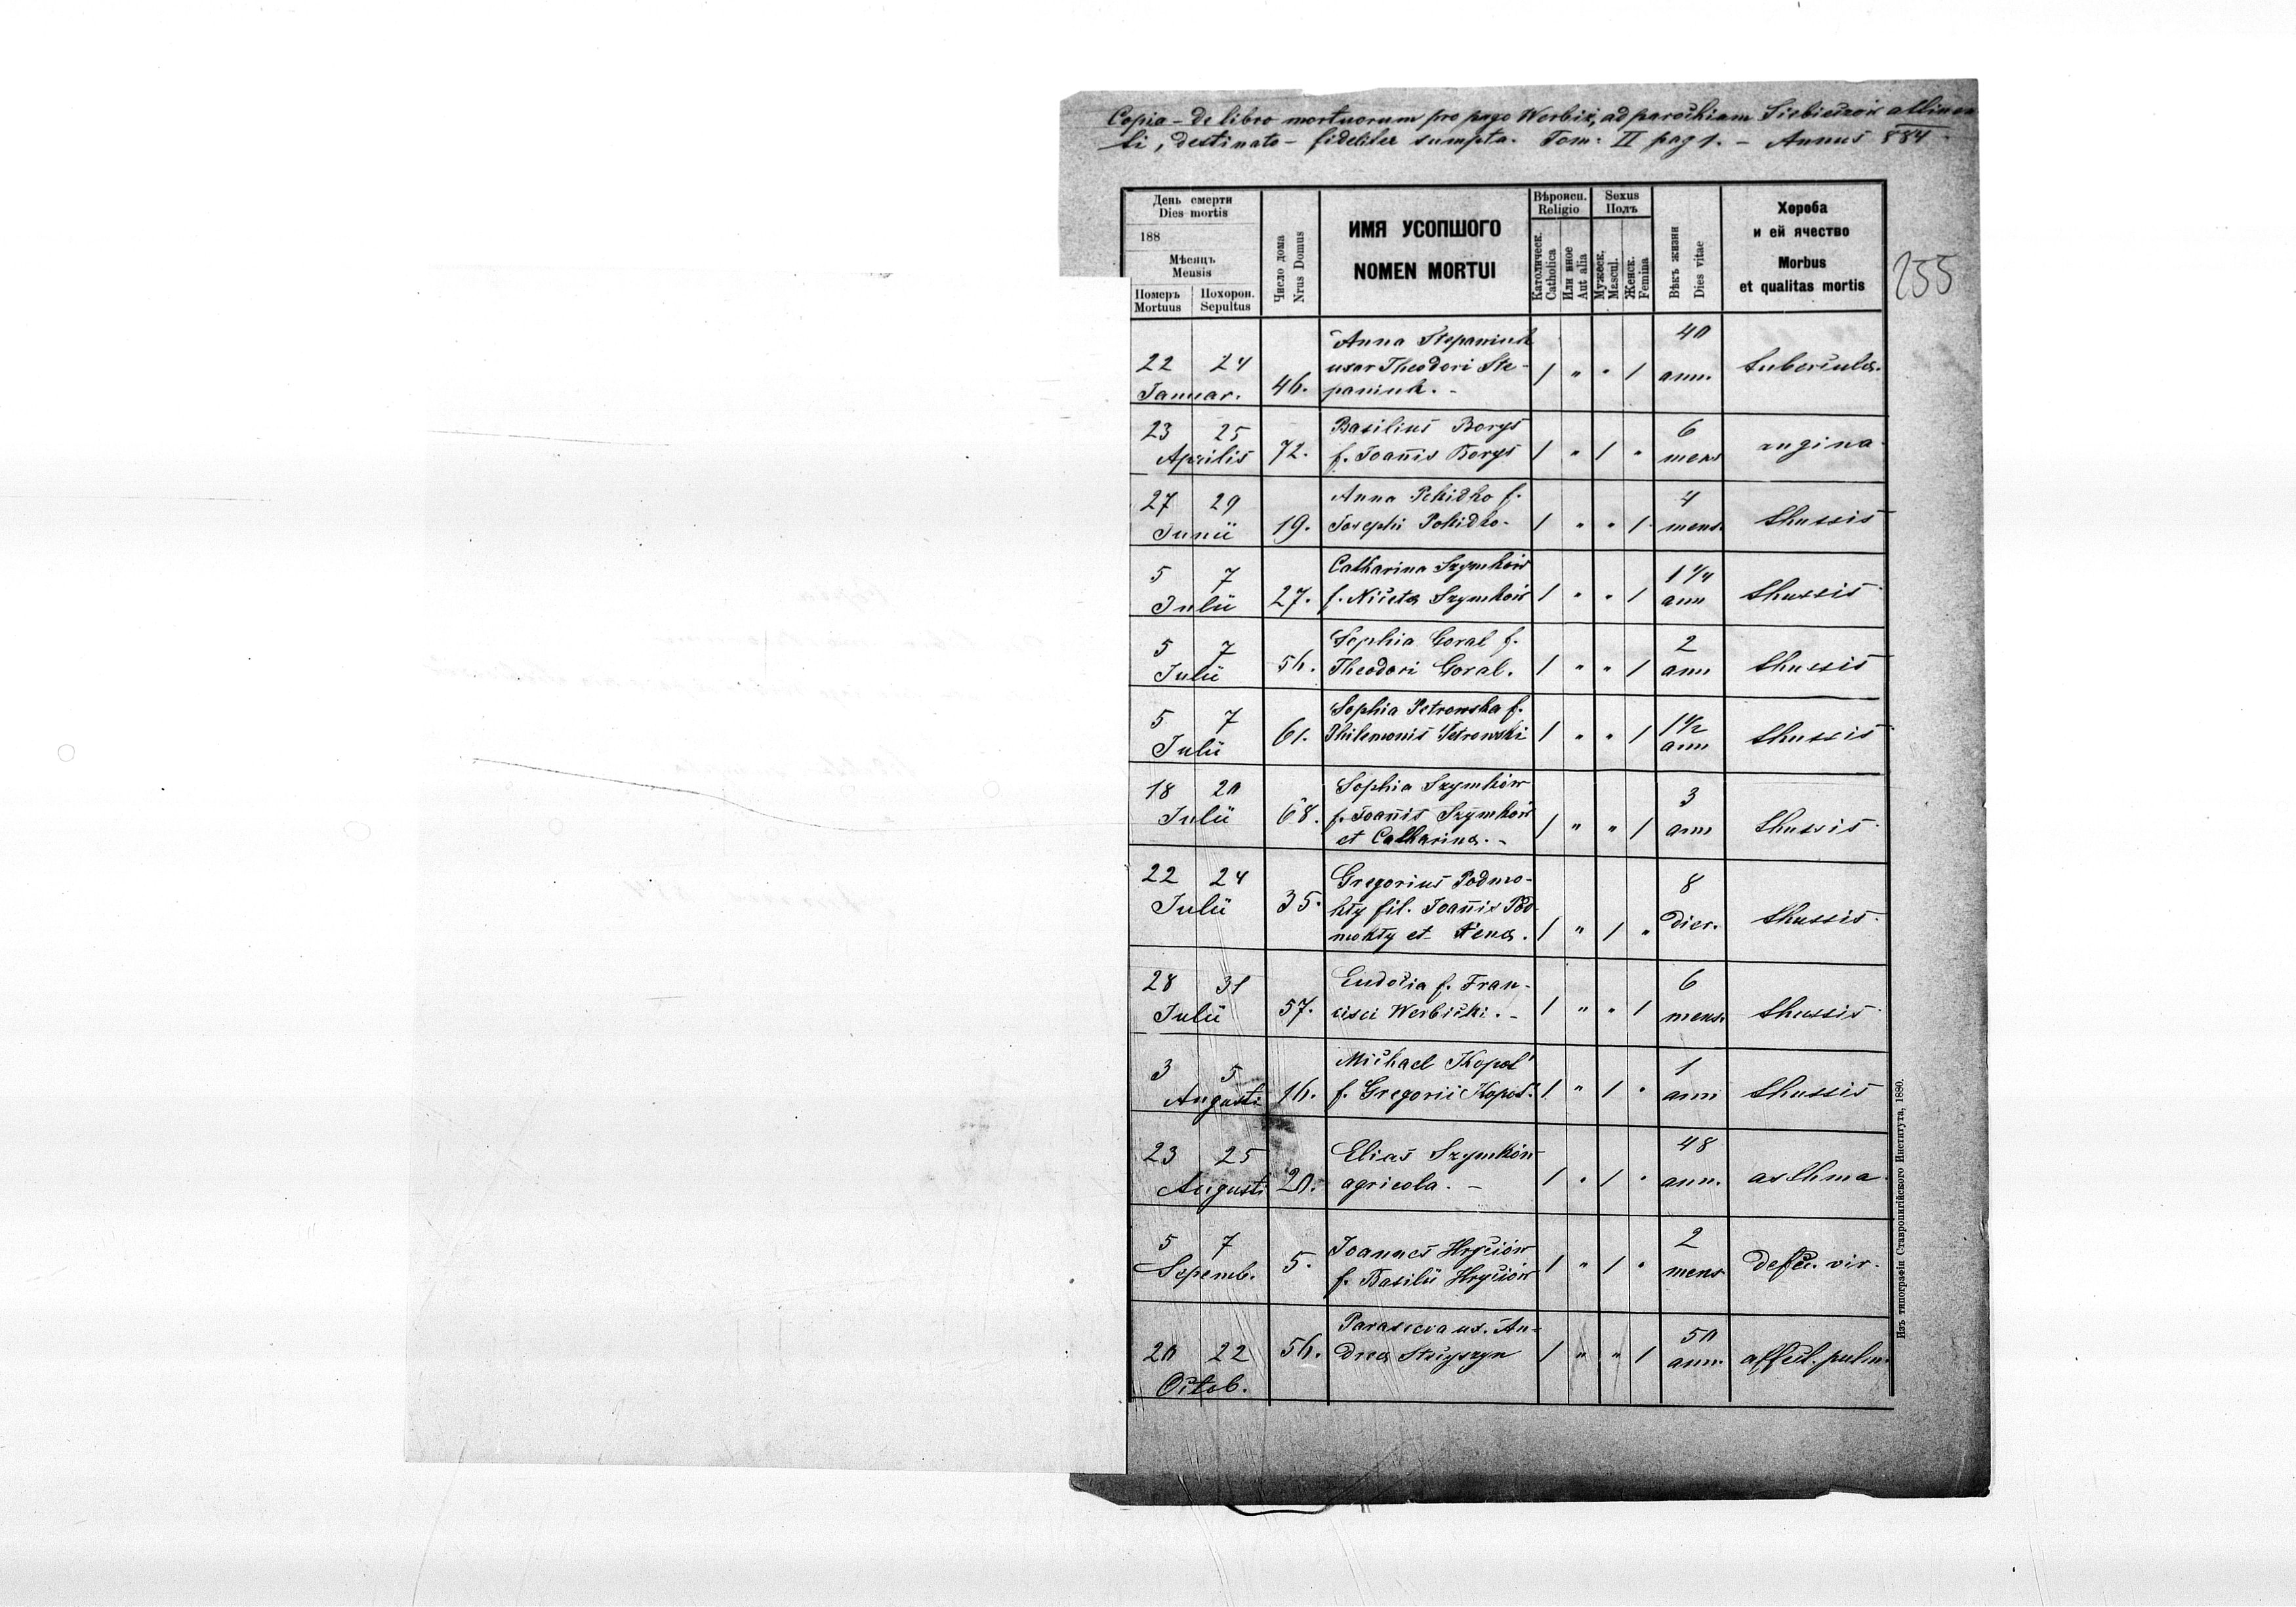 Copia - De libro mortuorum pro pago Werbiż, ad parochiam attinen
ti, destinato - fideliter sumpta. Tom: II pag 1. - Annus 884
День смерти
Dies mortis
188
Мѣсяцъ
Mensis
Померъ Mortuus
Похорон. Sepultus
Число дома
Nrus Domus
ИМЯ УСОПШОГО
NOMEN MORTUI
Вѣроисп.
Religio
Католическ.
Catholica
Или иное
Aut alia
Sexus
Полъ
Мужеск.
Mascul.
Женск.
Femina
Вѣкъ жизни
Dies vitae
Хороба
и ей ячество
Morbus
et qualitas mortis
255
Anna Stepaniuk 40
22 24 uxor Theodori Ste- 1 " " 1 ann. tubercula.
Januar. 46. paniuk. -
23 25 Basilius Borys 6
Aprilis 72. f. Joannis Borys 1 " 1 " mens angina
27 29 Anna f. 4
Junii 19. Josephi 1 " " 1 mens. thussis
5 7 Catharina Szymków 1 1/4
Julii 27. f. Niceta Szymków 1 " " 1 ann thussis
5 7 Sophia Goral f. 2
Julii 56. Theodori Goral. 1 " " 1 ann thussis
5 7 Sophia Petrowska f. 1 1/2
Julii 61. Philemonis Petrowski 1 " " 1 ann thussis
18 20 Sophia Szymków 3
Julii 68. f. Joannis Szymków 1 " " 1 ann thussis
et Catharina. -
22 24 Gregorius Podmo- 8
Julii 35. kły fil. Joannis Pod- dier. thussis
mokły et 1 " 1 "
28 31 Eudocia f. Fran- 6
Julii 57. cisci Werbicki. - 1 " " 1 mens. thussis
3 5 Michael Kopol 1
Augusti 16. f. Gregorii Kopol. 1 " 1 " ann thussis
23 25 Elias Szymków 48
Augusti 20. agricola. - 1 " 1 " ann. asthma
5 7 Joannes Hryciów 2
Sepemb. 5. f. Basilii Hryciów 1 " 1 " mens defec. vir.
Parasceva ux. An- 50
20 22 56. drea 1 " " 1 ann. affect. pulm.
Octob.
Изъ типографіи Ставропигійского Института, 1880.